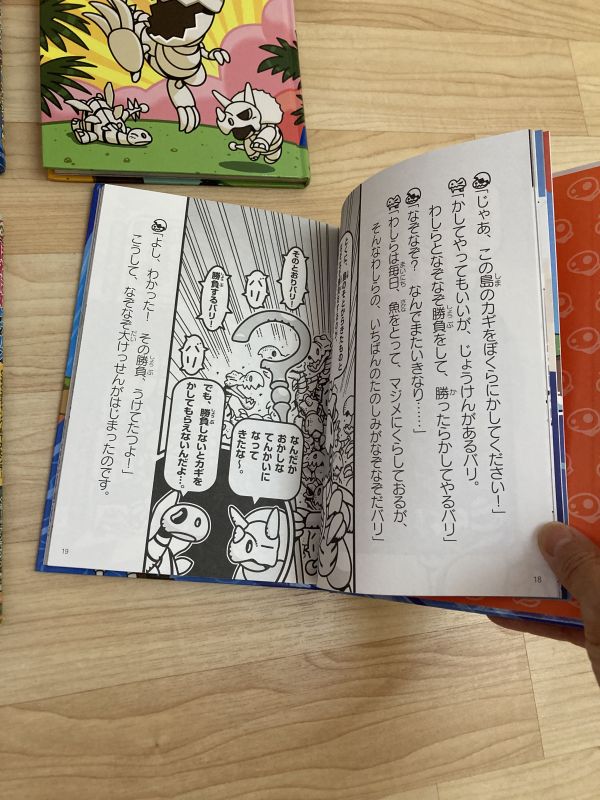 「じゃあ、この島のカギをぼくらにかしてください！」
「かしてやってもいいが、じょうけんがあるバリ。
わしらとなぞなぞ勝負をして、勝ったらかしてやるバリ」
「なぞなぞ？　なんでまたいきなり……」
「わしらは毎日、魚をとって、マジメにくらしておるが、
そんなわしらの、いちばんのたのしみがなぞなぞだバリ」
18
そのとおりバリ！
勝負するバリ！
バリ！
バリ！
なんだか
おかしな
てんかいに
なって
きたな〜。
でも、勝負しないとカギを
かしてもらえないんだよ…。
「よし、わかった！　その勝負、うけてたつよ！」
こうして、なぞなぞ大けっせんがはじまったのです。
19